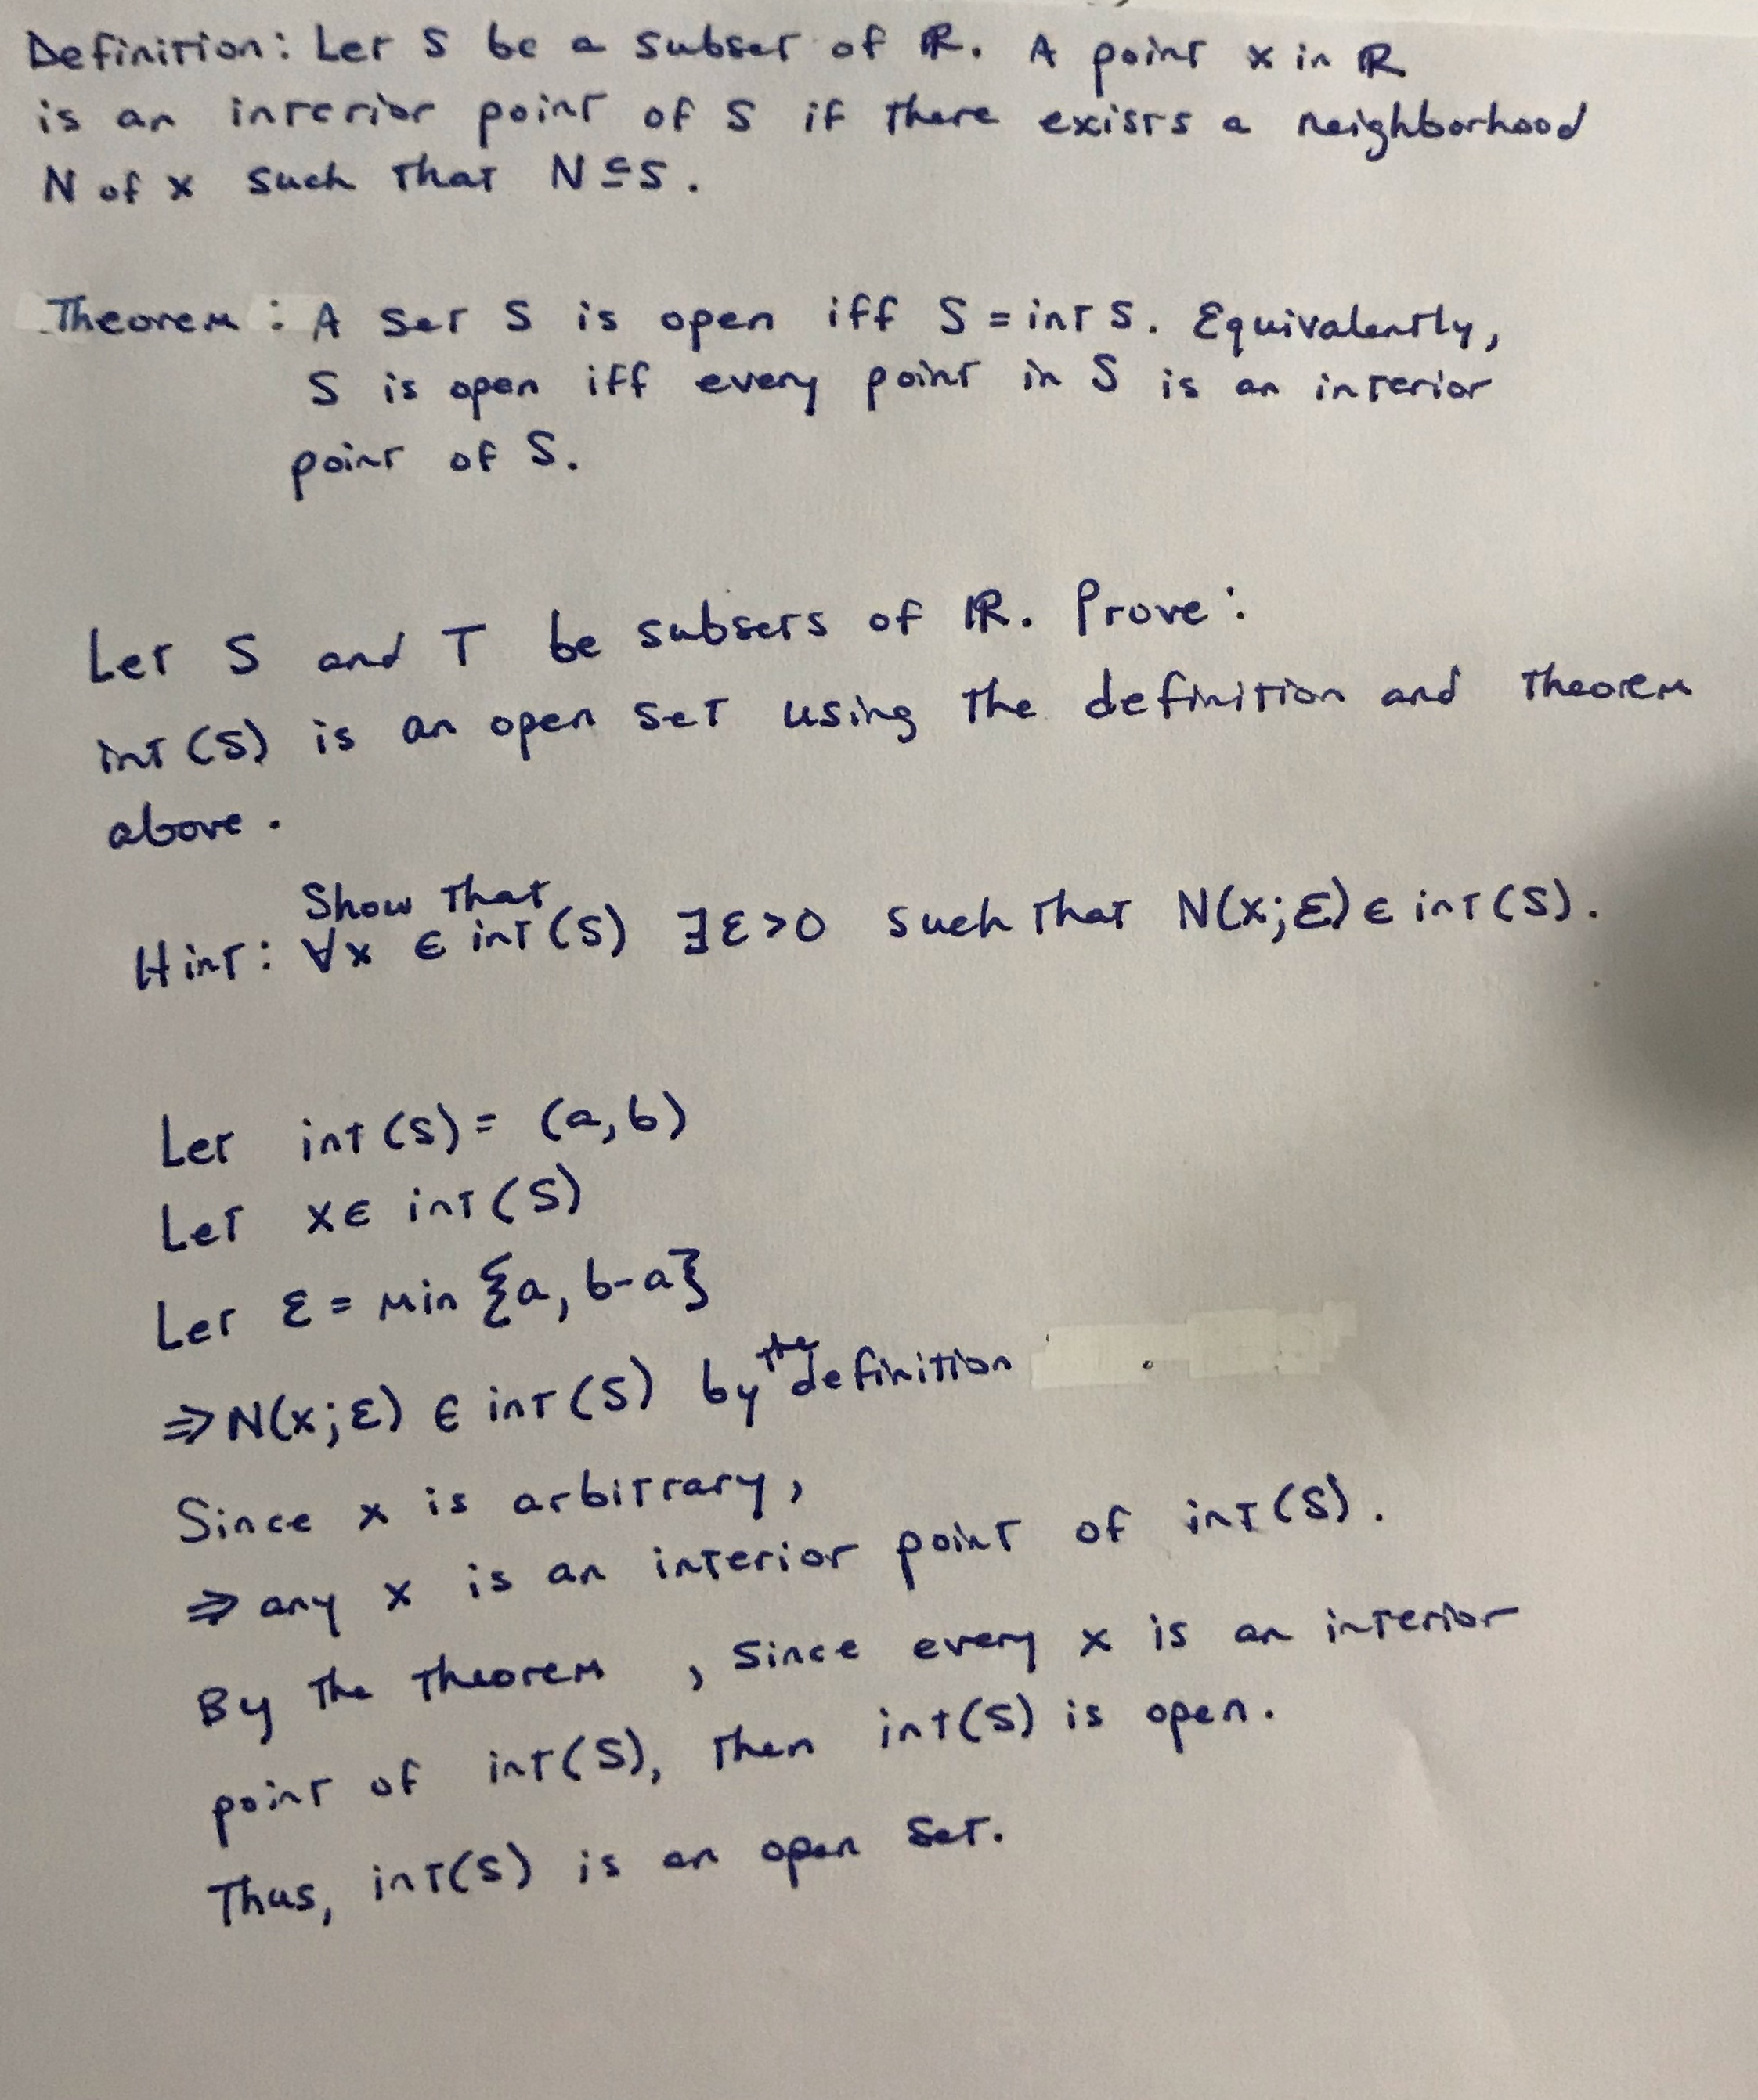 Definition: Let S be a subset of ℝ. A point x in ℝ
is an interior point of S if there exists a neighborhood
N of x such that N ⊆ S.
Theorem: A set S is open iff S = int S. Equivalently,
S is open iff every point in S is an interior
point of S.
Let S and T be subsets of ℝ. Prove:
int (S) is an open set using the definition and theorem
above.
Show that
Hint: ∀x ∈ int (S) ∃ε>0 such that N(x;ε) ∈ int (S).
Let int (S) = (a,b)
Let x ∈ int (S)
Let ε = min {a, b-a}
⇒ N(x;ε) ∈ int (S) by the definition
Since x is arbitrary,
⇒ any x is an interior point of int (S).
By the theorem , since every x is an interior
point of int (S), then int (S) is open.
Thus, int (S) is an open set.